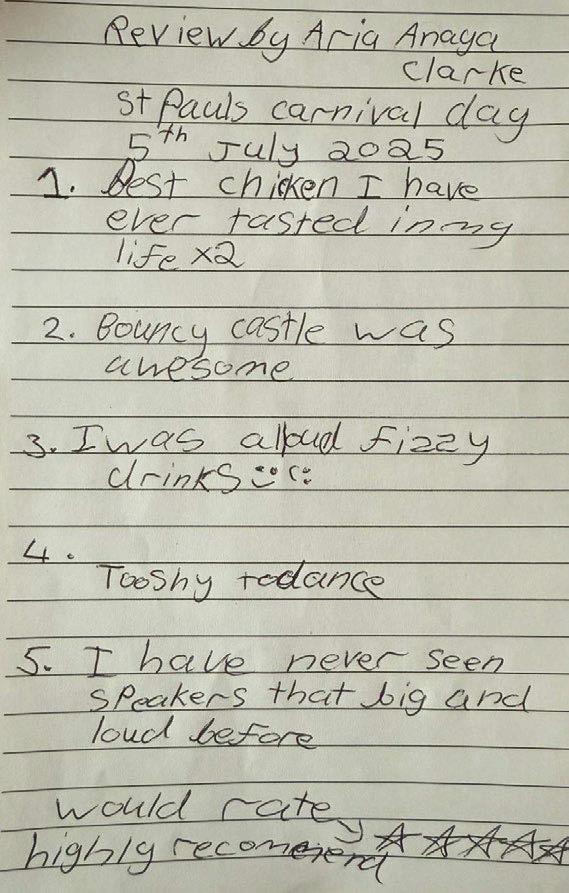 Review by Aria Anaya
Clarke
St Pauls carnival day
5th July 2025
1. Best chicken I have
ever tasted in my
life x2
2. Bouncy castle was
awesome
3. I was alloud fizzy
drinks
4.
Too shy to dance
5. I have never seen
speakers that big and
loud before
would rate
highly recommend ☆☆☆☆☆